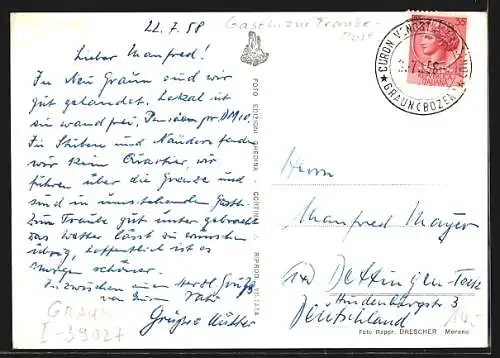 22.7.58
Gasth. zur Traube-
Post
Lieber Manfred!
In Neu Graun sind wir
gut gelandet. Lokal ist
einwandfrei, Pension pr. DM 10.
In Stuben und Nauders fanden
wir kein Quartier, wir
fuhren über die Grenze und
sind in umstehenden Gasth.
zum Traube gut untergebracht
das Wetter lässt zu wünschen
übrig, hoffentlich ist es
morgen schöner.
Inzwischen herzl. Grüße
von Deinem Vater
Grüße Mutter
GRAUN
I-39027
FOTO EDIZIONI GHEDINA CORTINA RIPROD. VIETATA
CURON VENOSTA
GRAUN (BOZEN)
Herrn
Manfred Mayer
(14) Dettingen-Teck
Hindenburgstr. 3
Deutschland
Foto Rappr. DRESCHER Merano